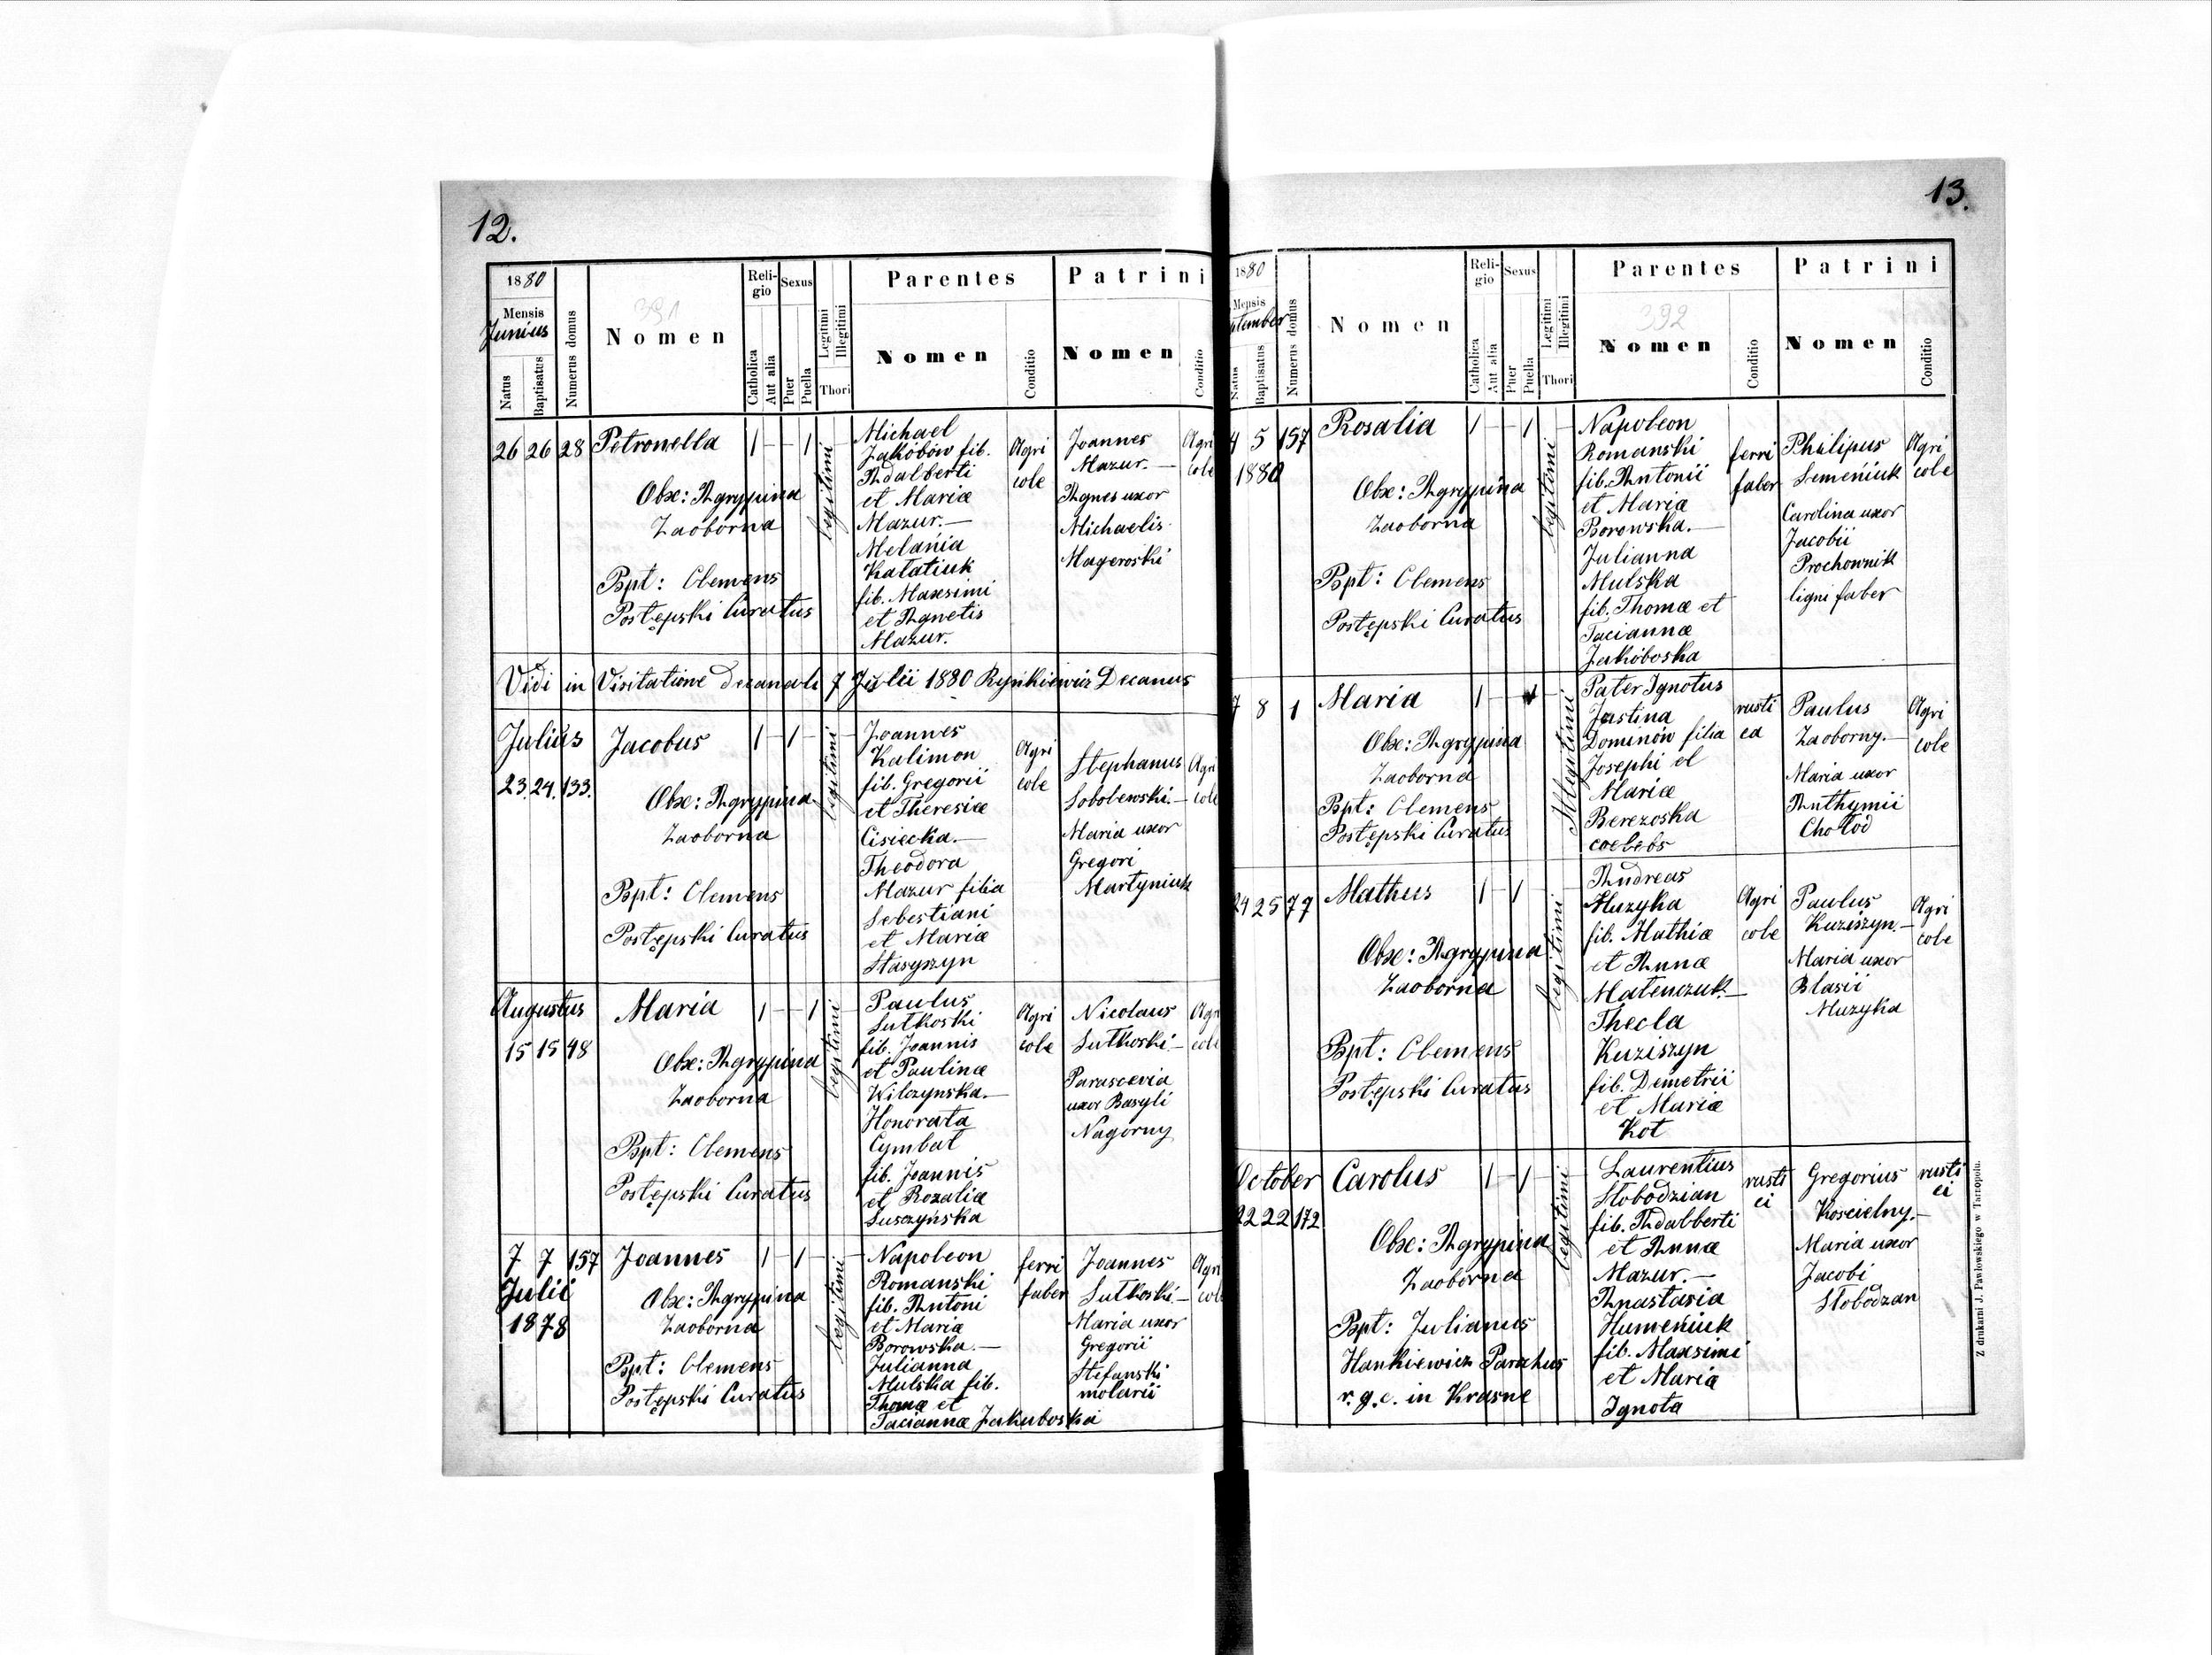 12.
1880
Mensis
Junius
Natus
Baptisatus
Numerus domus
391
Nomen
Religio
Catholica
Aut alia
Sexus
Puer
Puella
Legitimi
Illegitimi
Thori
Parentes
Nomen
Conditio
Patrini
Nomen
Conditio
26 26 28 Petronella
Obx: Agrypina
Zaoborna
Bpt: Clemens
Postępski Curatus
legitimi
Michael
Jakóbów fil.
Adalberti
et Mariæ
Mazur.—
Melania
Kałatiuk
fil. Maxsimi
et Agnetis
Mazur.
Agri
cole
Joannes
Mazur.—
Agnes uxor
Michaelis
Mageroski
Agri
cole
Vidi in Visitatione decanali 7 Julii 1880 Rynkiewicz Decanus
Julius
23. 24. 133.
Jacobus
Obx: Agrypina
Zaoborna
Bpt: Clemens
Postępski Curatus
legitimi
Joannes
Kalimon
fil. Gregorii
et Theresiæ
Cisiecka.—
Theodora
Mazur filia
Sebestiani
et Mariæ
Stasyszyn
Agri
cole
Stephanus
Sobolewski.—
Maria uxor
Gregori
Martyniuk
Agri
cole
Augustus
15 15 48
Maria
Obx: Agrypina
Zaoborna
Bpt: Clemens
Postępski Curatus
legitimi
Paulus
Sutkoski
fil. Joannis
et Paulinæ
Wilczynska.—
Honorata
Cymbał
fil. Joannis
et Rozaliæ
Susczyńska
Agri
cole
Nicolaus
Sutkoski.—
Parascevia
uxor Basyli
Nagorny
Agri
cole
7 7 157
Julii
1878
Joannes
Obx: Agrypina
Zaoborna
Bpt: Clemens
Postępski Curatus
legitimi
Napoleon
Romanski
fil. Antoni
et Maria
Borowska.—
Julianna
Mulska fil.
Thomæ et
Taciannæ Jakuboska
ferri
faber
Joannes
Sutkoski.—
Maria uxor
Gregorii
Stefanski
molarii
Agri
cole
13.
1880
Mensis
ptember
Natus
Baptisatus
Numerus domus
Nomen
Religio
Catholica
Aut alia
Sexus
Puer
Puella
Legitimi
Illegitimi
Thori
Parentes
392
Nomen
Conditio
Patrini
Nomen
Conditio
4 5 157
1880
Rosalia
Obx: Agrypina
Zaoborna
Bpt: Clemens
Postępski Curatus
legitimi
Napoleon
Romanski
fil. Antonii
et Maria
Borowska.—
Julianna
Mulska
fil. Thomæ et
Taciannæ
Jakóboska
ferri
faber
Philipus
Semeniuk
Carolina uxor
Jacobii
Prochownik
ligni faber
Agri
cole
7 8 1
Maria
Obx: Agrypina
Zaoborna
Bpt: Clemens
Postępski Curatus
Illegitimii
Pater Ignotus
Justina
Dominów filia
Josephi et
Mariæ
Berezoska
coelebs
rusti
ca
Paulus
Zaoborny.—
Maria uxor
Anthymii
Chołod
Agri
cole
24 25 77
Matheus
Obx: Agrypina
Zaoborna
Bpt: Clemens
Postępski Curatus
legitimi
Andreas
Muzyka
fil. Mathiæ
et Annæ
Matenczuk.—
Thecla
Kuziszyn
fil. Demetrii
et Mariæ
Kot
Agri
cole
Paulus
Kuziszyn.—
Maria uxor
Blasii
Muzyka
Agri
cole
October
22 22 172
Carolus
Obx: Agrypina
Zaoborna
Bpt: Julianus
Hankiewicz Parochus
r. g. c. in Krasne
legitimi
Laurentius
Słobodzian
fil. Adalberti
et Annæ
Mazur.—
Anastasia
Humeniuk
fil. Maxsimi
et Maria
Ignota
rusti
ci
Gregorius
Koscielny.—
Maria uxor
Jacobi
Słobodzan
rusti
ci
Z drukarni J. Pawłowskiego w Tarnopolu.